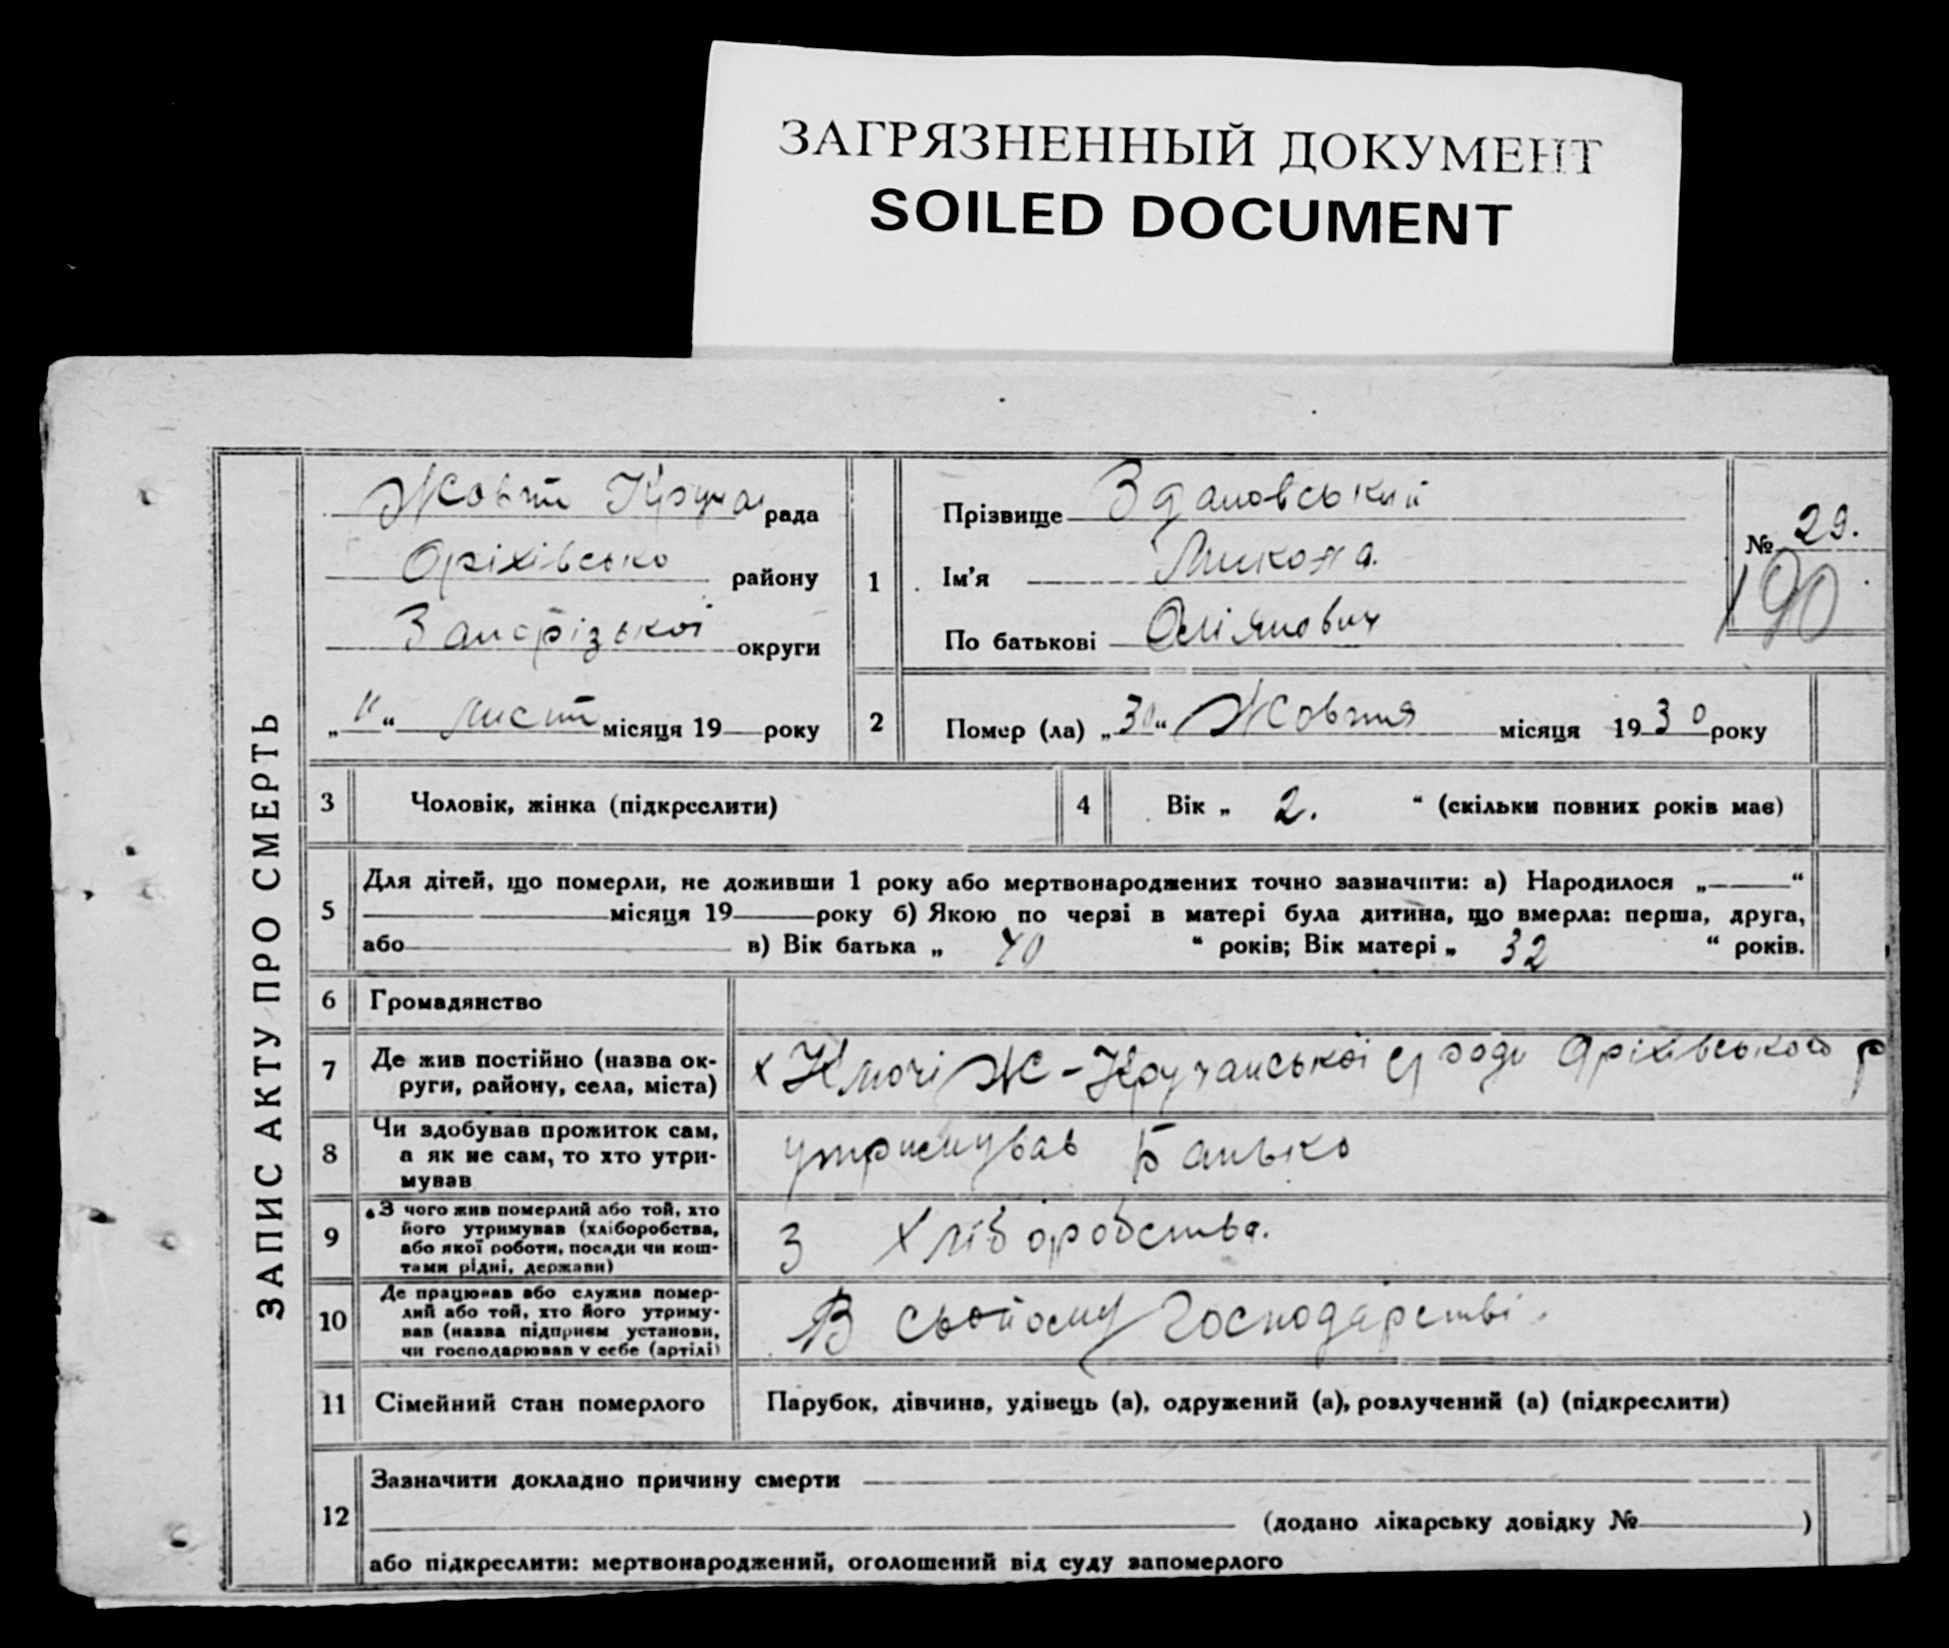 ЗАГРЯЗНЕННЫЙ ДОКУМЕНТ
SOILED DOCUMENT
ЗАПИС АКТУ ПРО СМЕРТЬ
Жовт Круча рада
Оріхівсько району
Запорізької округи
„11“ лист місяця 19 року
1
Прізвище Здановський
Ім'я Микола.
По батькові
№ 29.
190
2
Помер (ла) „30“ Жовтня місяця 1930 року
3 Чоловік, жінка (підкреслити)
4 Вік „ 2. “ (скільки повних років має)
5
Для дітей, що померли, не доживши 1 року або мертвонароджених точно зазначити: а) Народилося „ “
місяця 19 року б) Якою по черзі в матері була дитина, що вмерла: перша, друга,
або в) Вік батька „ 40 “ років; Вік матері „ 32 “ років.
6 Громадянство
7
Де жив постійно (назва ок-
руги, району, села, міста)
х Ключі Ж-Кручанської с/ ради Оріхівського р
8
Чи здобував прожиток сам,
а як не сам, то хто утри-
мував
утримував Батько
9
З чого жив померлий або той, хто
його утримував (хліборобства,
або якої роботи, посади чи кош-
тами рідні, держави)
З Хліборобства.
10
Де працював або служив помер-
лий або той, хто його утриму-
вав (назва підприєм установи,
чи господарював у себе (артілі)
В свойому Господарстві.
11 Сімейний стан померлого
Парубок, дівчина, удівець (а), одружений (а), розлучений (а) (підкреслити)
12
Зазначити докладно причину смерти
(додано лікарську довідку № )
або підкреслити: мертвонароджений, оголошений від суду запомерлого